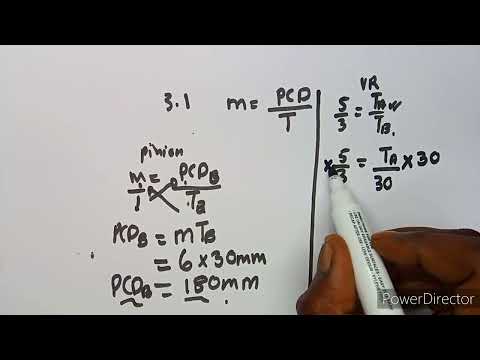 3.1 m = PCD/T
pinion
m/1 = PCD_B/T_B
PCD_B = mT_B
= 6 × 30mm
PCD_B = 180mm
VR
5/3 = T_A/T_B
× 5/3 = T_A/30 × 30
PowerDirector